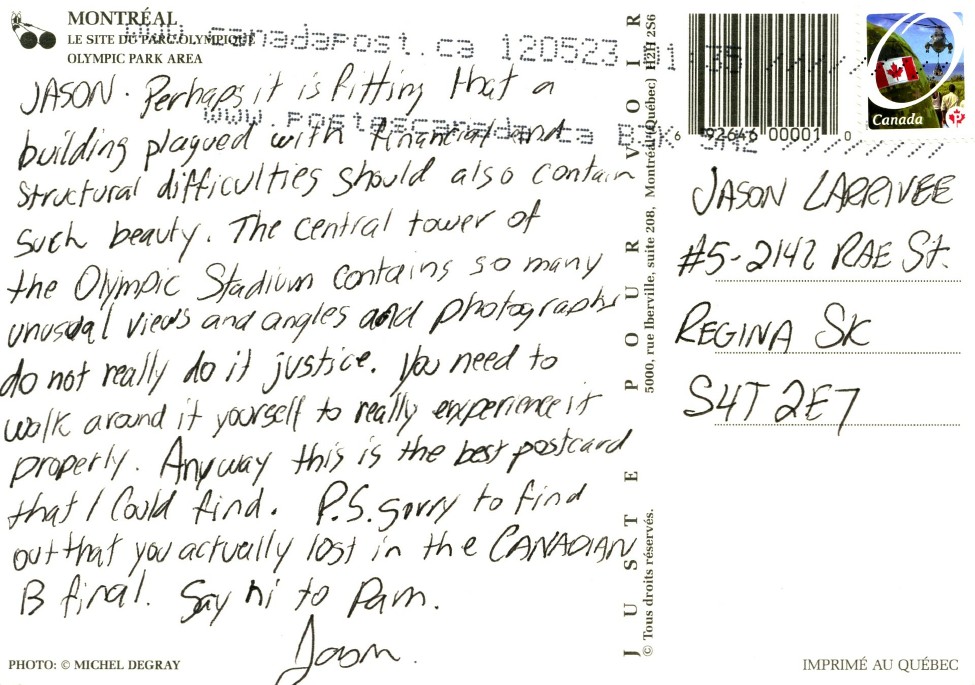 MONTRÉAL
LE SITE DU PARC OLYMPIQUE
OLYMPIC PARK AREA
www.canadapost.ca 120523 01:35
www.postescanada.ca
JASON. Perhaps it is fitting that a
building plagued with financial and
structural difficulties should also contain
such beauty. The central tower of
the Olympic Stadium contains so many
unusual views and angles and photographs
do not really do it justice. You need to
walk around it yourself to really experience it
properly. Anyway this is the best postcard
that I could find. P.S. sorry to find
out that you actually lost in the CANADIAN
B final. Say hi to Pam.
Jason.
PHOTO: © MICHEL DEGRAY
JUSTE POUR VOIR
© Tous droits réservés. 5000, rue Iberville, suite 208, Montréal (Québec) H2H 2S6
6 92646 00001 0
Canada
P
JASON LARRIVEE
#5-2142 RAE St.
REGINA SK
S4T 2E7
IMPRIMÉ AU QUÉBEC